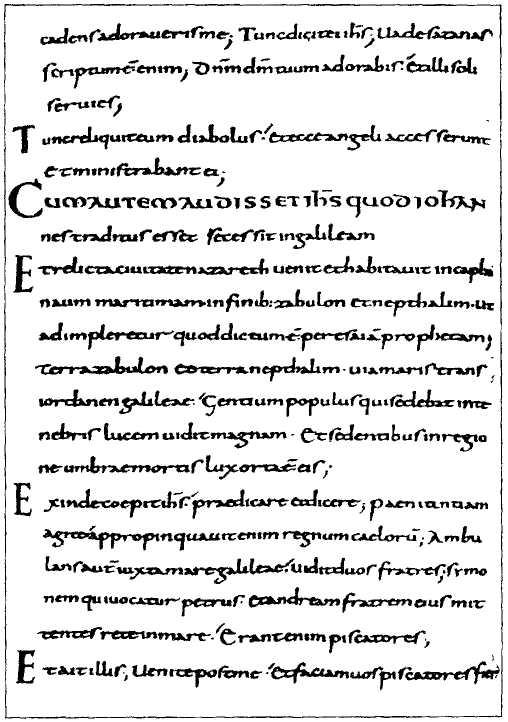 cadens adoraveris me; Tunc dicit ei ihs; Uade satanas
scriptum ē enim, Dnm dm tuum adorabis. Et illi soli
servies;
Tunc reliquit eum diabolus. Et ecce angeli accesserunt
et ministrabant ei;
CUM AUTEM AUDISSET IHS QUOD IOHAN
nes traditus esset secessit in galileam
Et relicta civitate nazareth uenit et habitauit in caphar
naum maritimam in finib: zabulon et nepthalim. ut
adimpleretur quod dictum ē per esaiā prophetam;
Terra zabulon et terra nepthalim. uia maris trans
iordanen galileae. Gentium populus qui sedebat in te
nebris lucem uidit magnam. Et sedentibus in regio
ne umbrae mortis lux orta ē eis;
Exinde coepit ihs praedicare et dicere; paenitentiam
agite appropinquauit enim regnum caelorū; Ambu
lans aut iuxta mare galileae. Uidit duos fratres; simo
nem qui uocatur petrus. et andream fratrem eius mit
tentes rete in mare. Erant enim piscatores;
Et ait illis; Uenite post me. Et faciam uos piscatores fieri